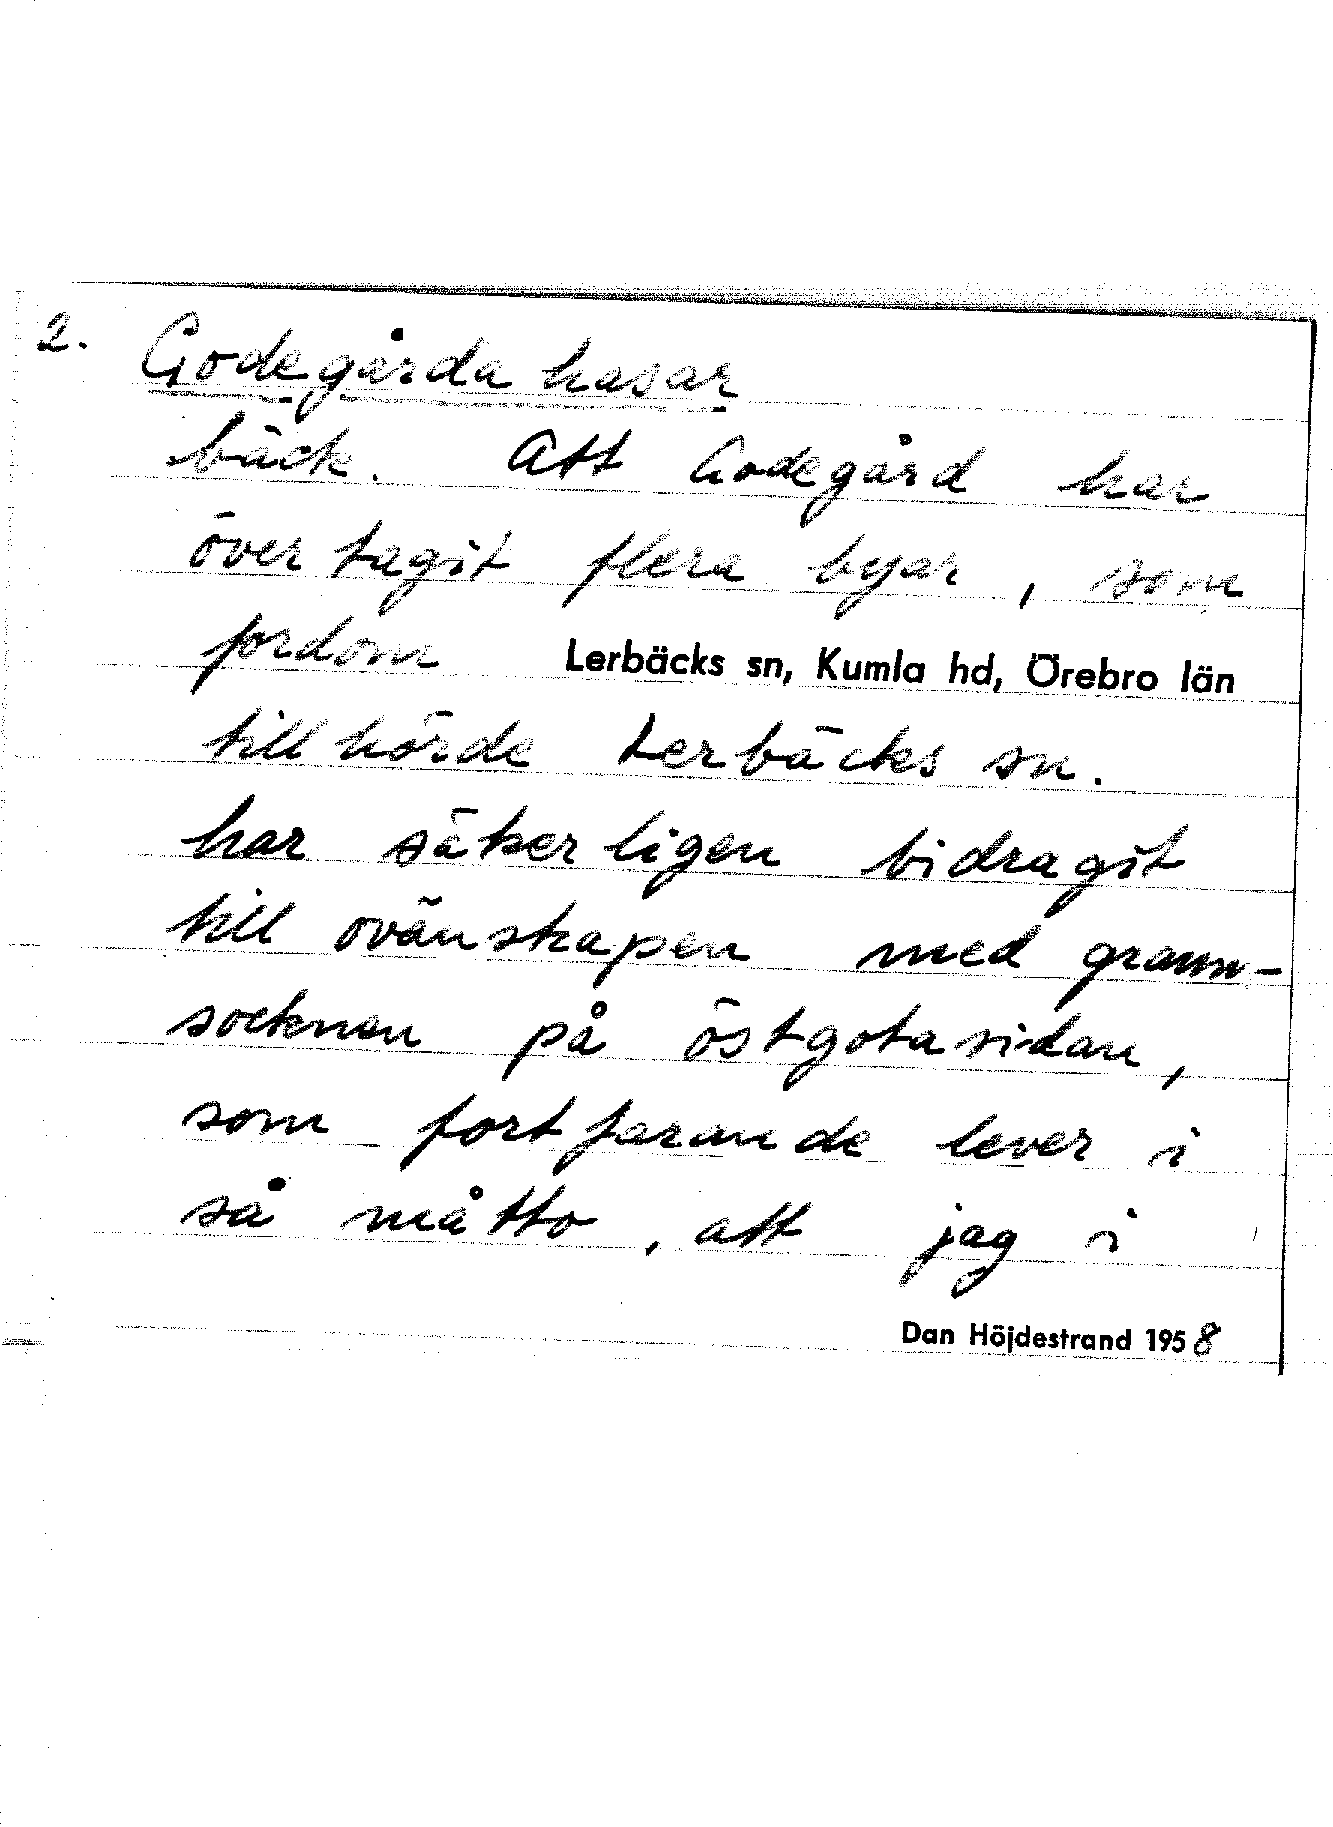 2. Godegårda hasar
bäck. Att Godegård har
övertagit flera byar, som
fordom Lerbäcks sn, Kumla hd, Örebro län
tillhörde Lerbäcks sn.
har säkerligen bidragit
till ovänskapen med grann-
socknen på östgotasidan,
som fortfarande lever i
så måtto, att jag i
Dan Höjdestrand 1958